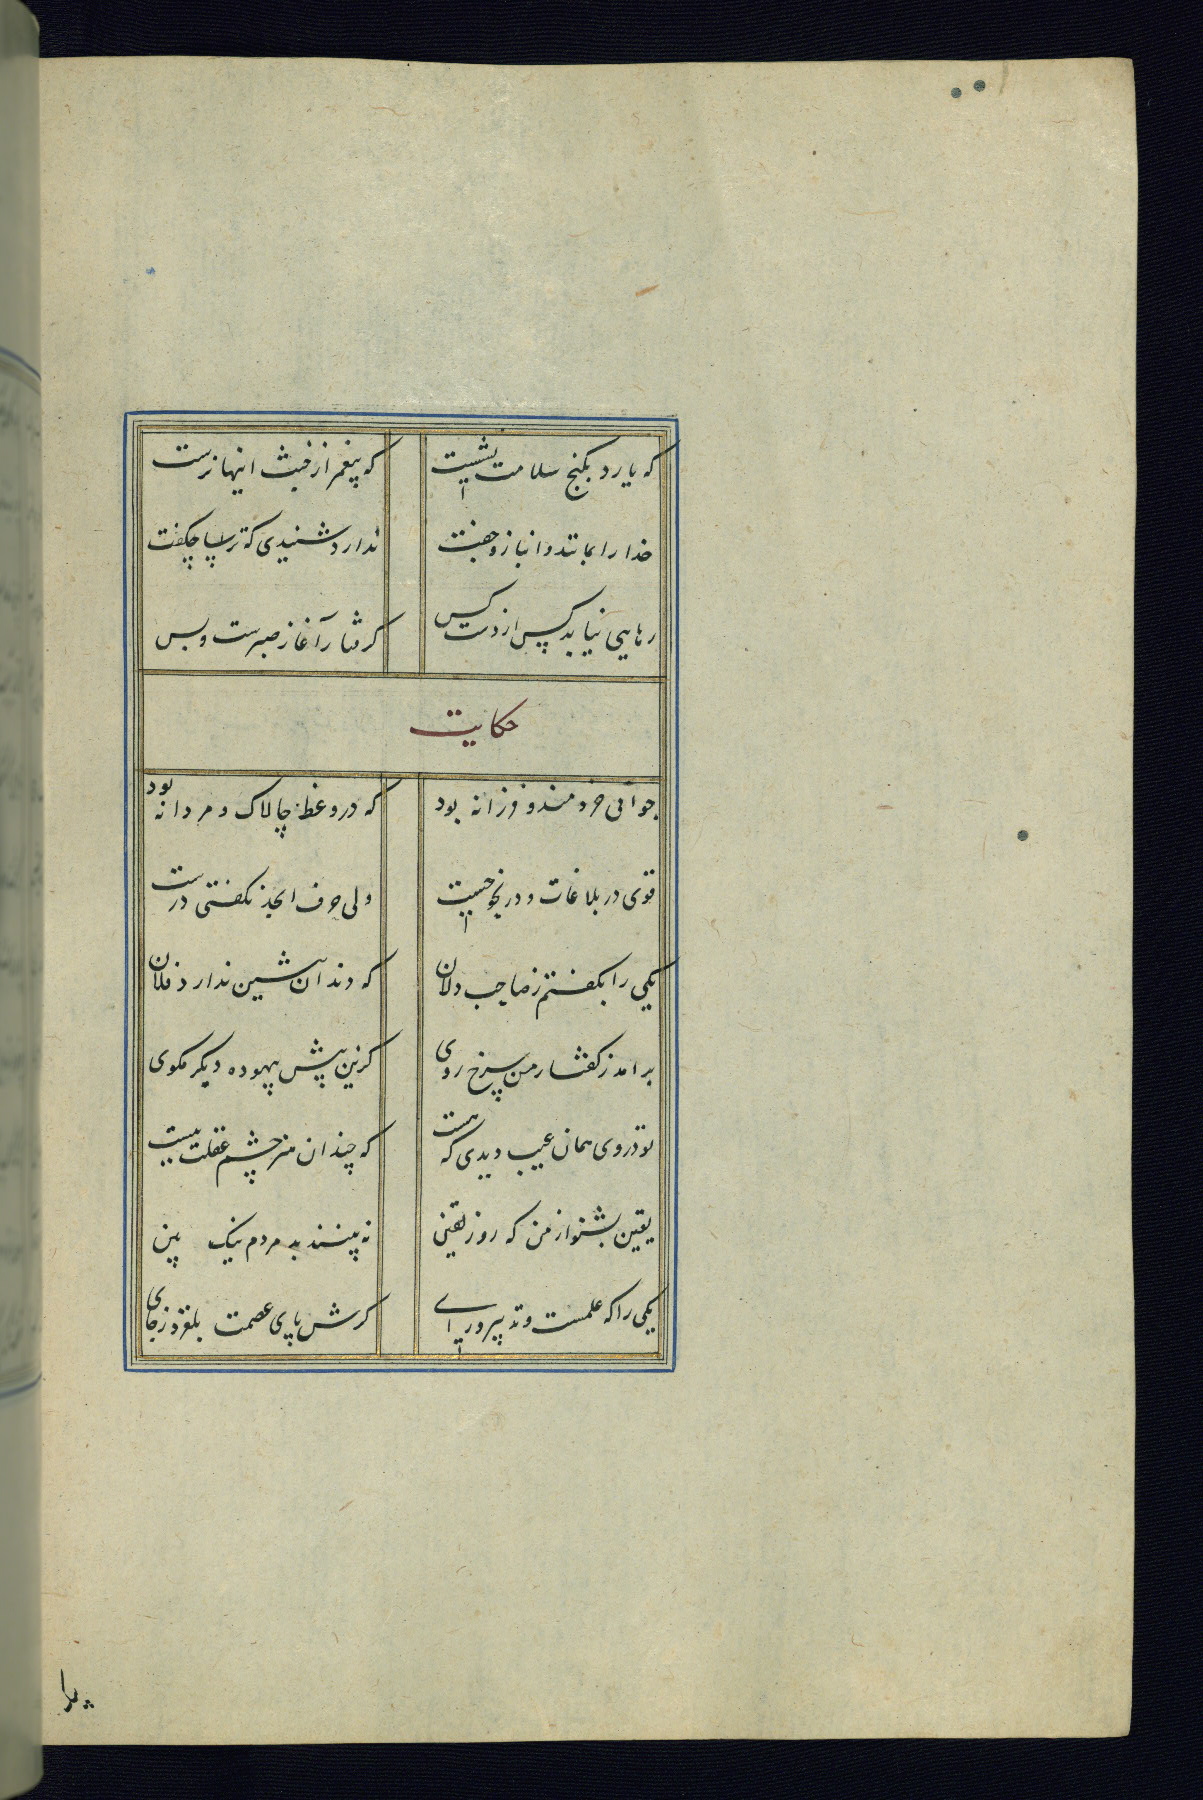 که یارد بکنج سلامت نشست که پیغمبر از خبث اینها نرست
خدا را بمانند و انباز و جفت ندارد شنیدی که ترسا چکفت
رهایی نیابد کس از دست کس کرفتار را غاز صبرست و بس
حکایت
جوانی خردمند و فرزانه بود که در وعظ چالاک و مردانه بود
قوی در بلاغات و در نحو چست ولی حرف ابجد نکفتی درست
یکی را بکفتم ز صاحب دلان که دندان پیشین ندارد فلان
برامد ز کفتار من سرخ روی کزین پیش بیهوده دیکر مکوی
تو در وی همان عیب دیدی که هست که چندان هنر چشم عقلت ببست
یقین بشنو از من که روز یقین نه بینند بد مردم نیک بین
یکی را که علمست و تدبیر و رای کرش پای عصمت بلغزد ز جای